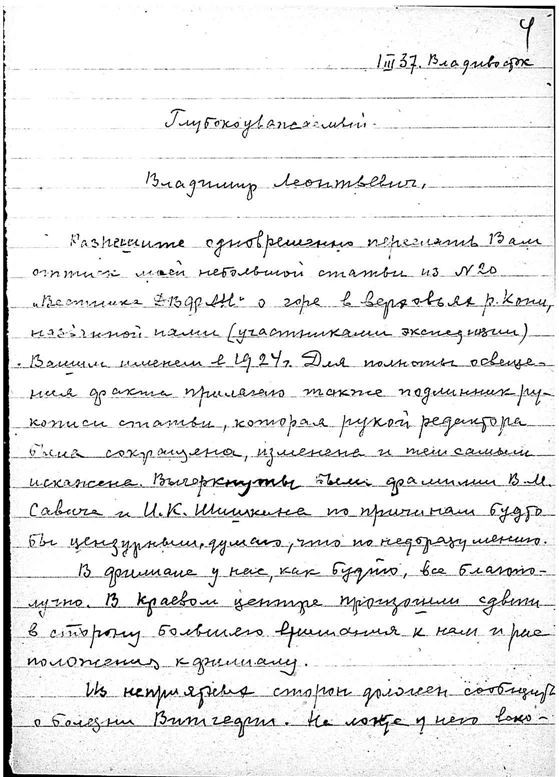 4
1 III 37. Владивосток
Глубокоуважаемый
Владимир Леонтьевич,
Разрешите одновременно переслать Вам
оттиск моей небольшой статьи из N20
„Вестника ДВФАН“ о горе в верховьях р. Копи,
названной нами (участниками экспедиции)
Вашим именем в 1927г. Для полноты освеще-
ния факта прилагаю также подлинник ру-
кописи статьи, которая рукой редактора
была сокращена, изменена и тем самым
искажена. Вычеркнуты были фамилии В.М.
Савича и И.К. Шишкина по причинам будто
бы цензурным, думаю, что по недоразумению.
В филиале у нас, как будто, все благопо-
лучно. В краевом центре произошли сдвиги
в сторону большего внимания к нам и рас
положения к филиалу.
Из неприятных сторон должен сообщить
о болезни Витгефт. На у него